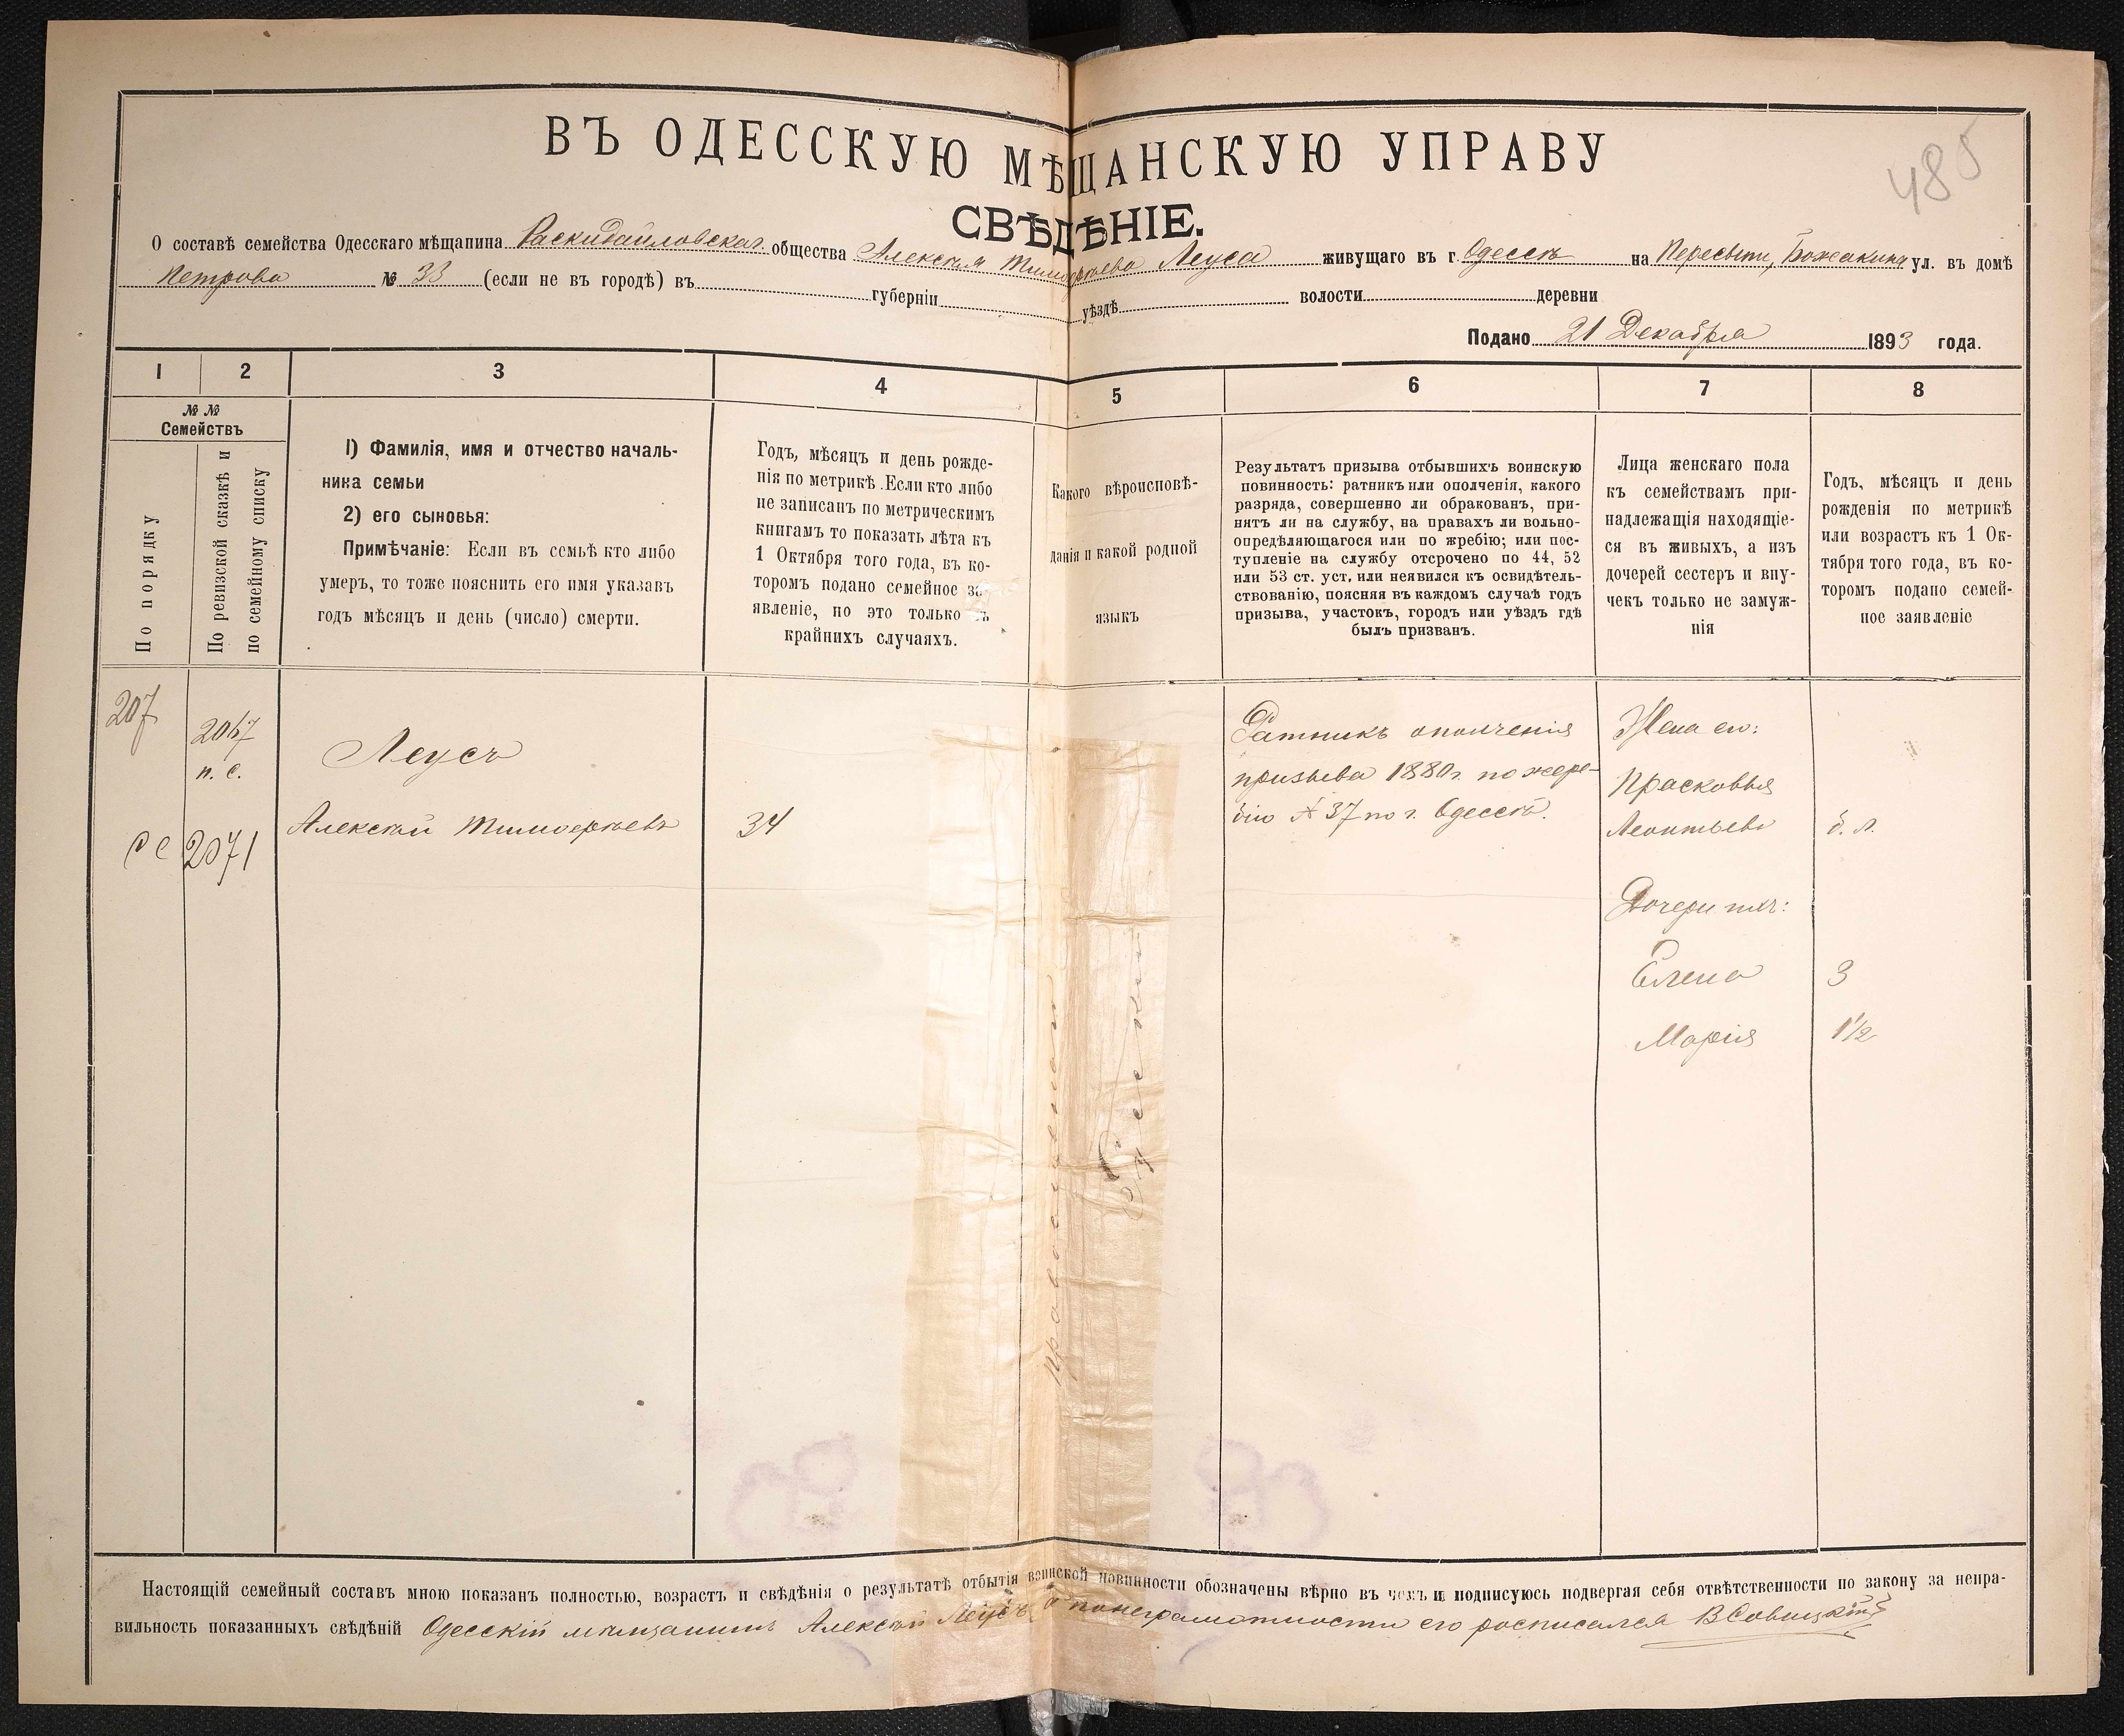 485
ВЪ ОДЕССКУЮ МѢЩАНСКУЮ УПРАВУ
СВѢДѢНІЕ.
О составѣ семейства Одесскаго мѣщанина Раскидайловскаг. общества Алексѣя Тимоѳеева Леуса живущаго въ г. Одессѣ на Пересыпи, ул. въ домѣ
Петрова № 33 (если не въ городѣ) въ губерніи уѣздѣ волости деревни
Подано 21 Декабря 1893 года.
1 2 3 4 5 6 7 8
№ №
Семействъ
По порядку
По ревизской сказкѣ и
по семейному списку
1) Фамилія, имя и отчество началь-
ника семьи
2) его сыновья:
Примѣчаніе: Если въ семьѣ кто либо
умеръ, то тоже пояснить его имя указавъ
годъ мѣсяцъ и день (число) смерти.
Годъ, мѣсяцъ и день рожде-
нія по метрикѣ. Если кто либо
не записанъ по метрическимъ
книгамъ то показать лѣта къ
1 Октября того года, въ ко-
торомъ подано семейное за-
явленіе, но это только въ
крайнихъ случаяхъ.
Какого вѣроисповѣ-
данія и какой родной
языкъ
Результатъ призыва отбывшихъ воинскую
повинность: ратникъ или ополченія, какого
разряда, совершенно ли обракованъ, при-
нятъ ли на службу, на правахъ ли вольно-
опредѣляющагося или по жребію; или пос-
тупленіе на службу отсрочено по 44, 52
или 53 ст. уст. или неявился къ освидѣтель-
ствованію, поясняя въ каждомъ случаѣ годъ
призыва, участокъ, городъ или уѣздъ гдѣ
былъ призванъ.
Лица женскаго пола
къ семействамъ при-
надлежащія находящіе-
ся въ живыхъ, а изъ
дочерей сестеръ и вну-
чекъ только не замуж-
нія
Годъ, мѣсяцъ и день
рожденія по метрикѣ
или возрастъ къ 1 Ок-
тября того года, въ ко-
торомъ подано семей-
ное заявленіе
207
2067
п. с.
Леусъ
Алексѣй Тимоѳеевъ 34
рс 2071
православный
Русскій
Ратникъ ополченія
призыва 1880 г. по жере-
бію № 37 по г. Одессѣ.
Жена его:
Прасковья
Леонтьева б. л.
Дочери ихъ:
Елена 3
Марія 1½
Настоящій семейный составъ мною показанъ полностью, возрастъ и свѣдѣнія о результатѣ отбытія воинской повинности обозначены вѣрно въ чемъ и подписуюсь подвергая себя отвѣтственности по закону за непра-
вильность показанныхъ свѣдѣній Одесскій мѣщанинъ Алексѣй Леусъ, а по неграмотности его росписался В Совицкій